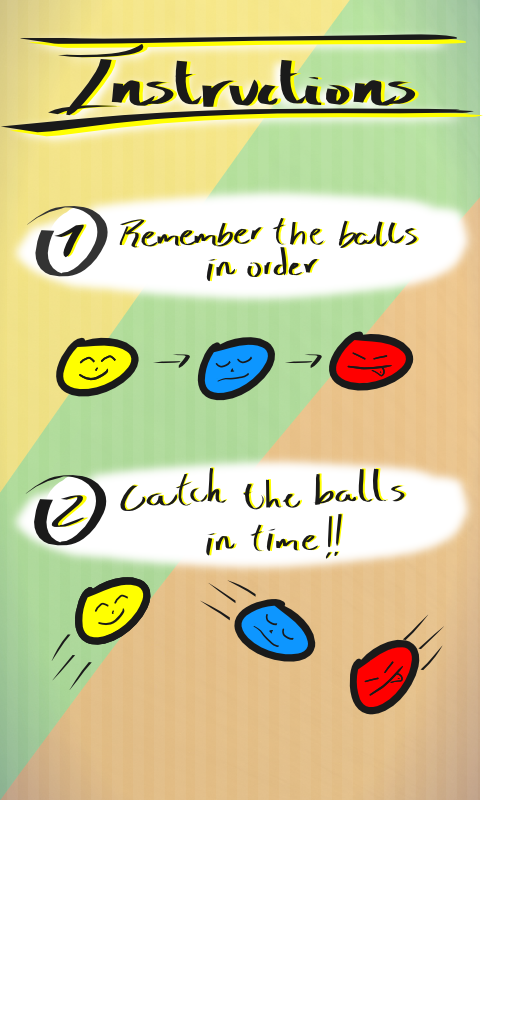 Instructions
1 Remember the balls
in order
2 Catch the balls
in time!!